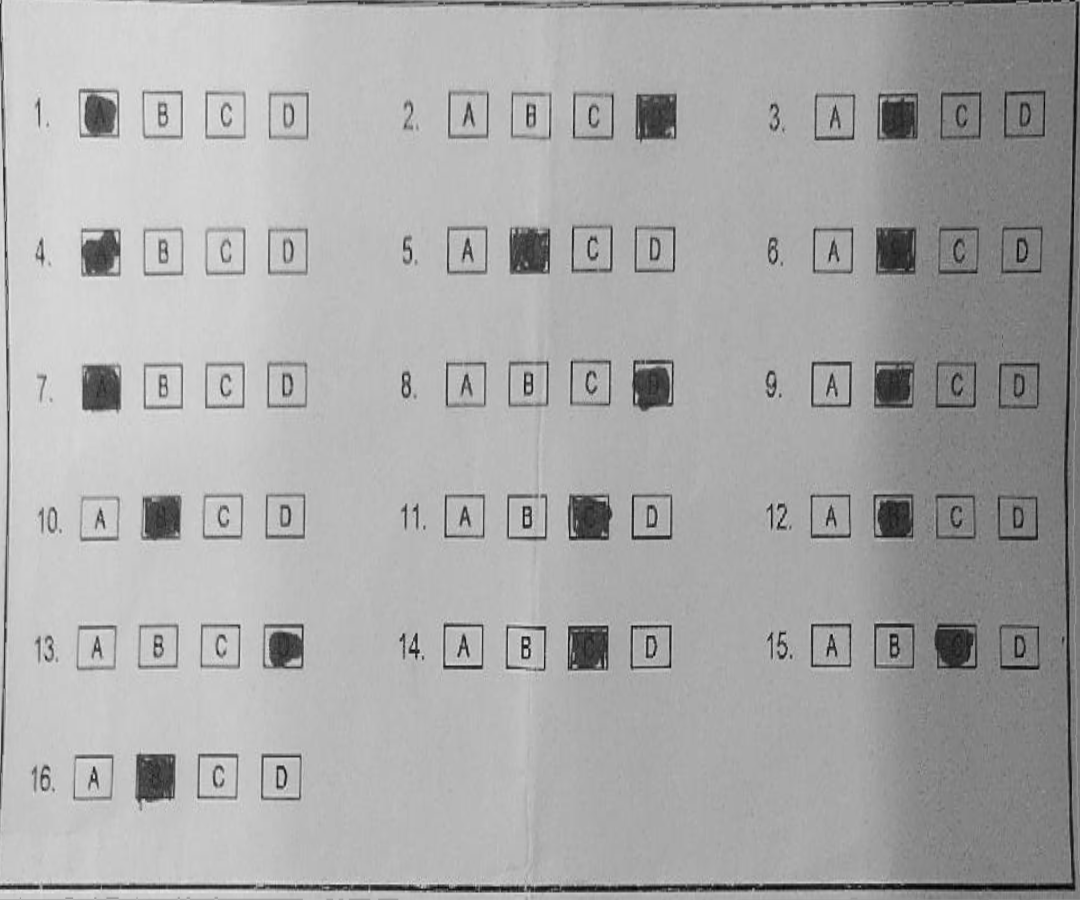 1. A B C D 2. A B C 3. A C D
4. B C D 5. A C D 6. A C D
7. A B C D 8. A B C D 9. A B C D
10. A B C D 11. A B C D 12. A B C D
13. A B C D 14. A B C D 15. A B C D
16. A B C D